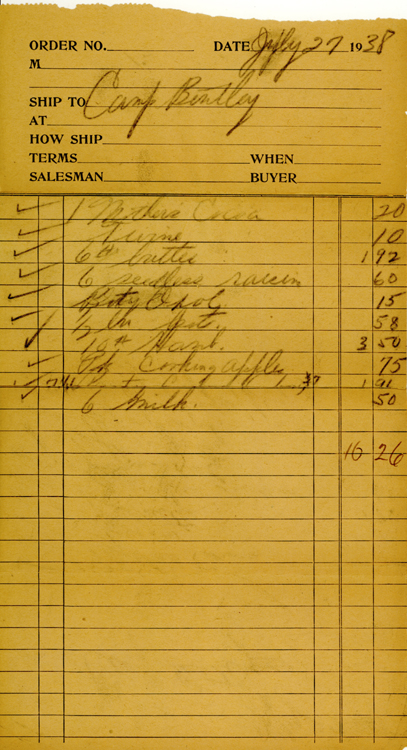 ORDER NO. DATE July 27 1938
M
SHIP TO Camp Bentley
AT
HOW SHIP
TERMS WHEN
SALESMAN BUYER
1 Mother's Cocoa 20
Twine 10
6 lb butter 1 92
6 seedless raisin 60
15
58
Ham 3 50
Pk Cooking apples 75
1 91
6 milk. 50
10 26